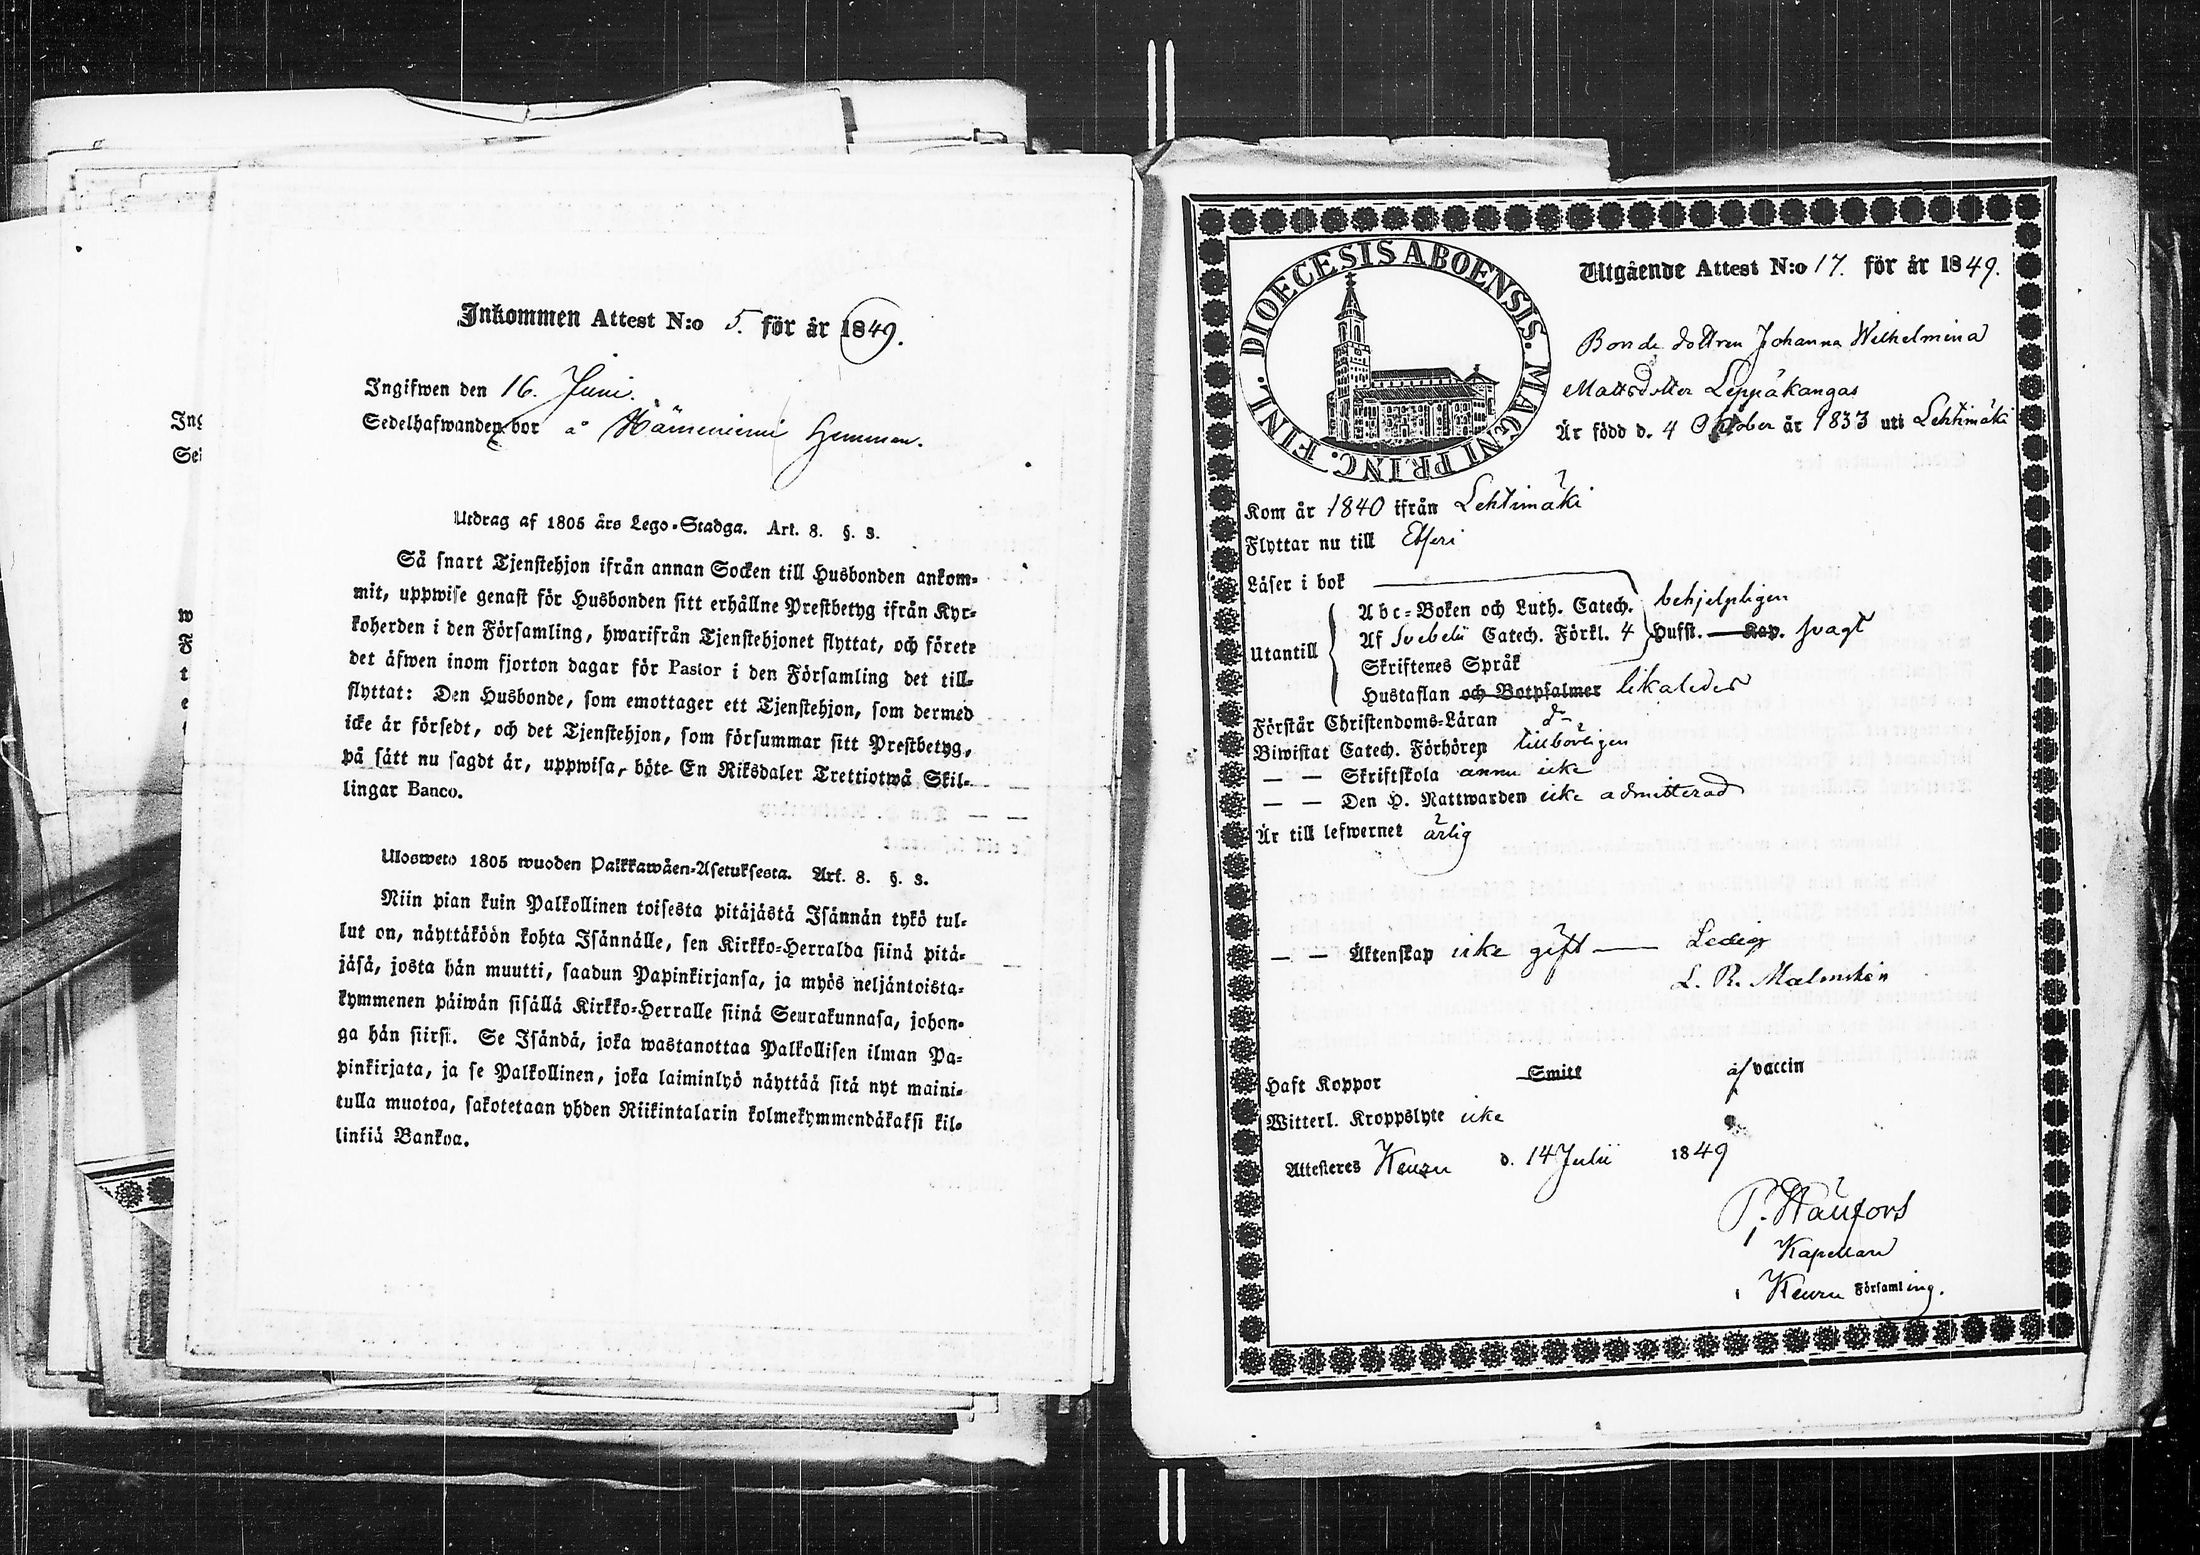 Inkommen Attest N:o 5. för år 1849.
Ingifwen den 16. Juni.
Sedelhafwanden bor å Hämeniemi Hemman.
Utdrag af 1805 års Lego-Stadga. Art. 8. §. 3.
Så snart Tjenstehjon ifrån annan Socken till Husbonden ankom-
mit, uppwise genast för Husbonden sitt erhållne Prestbetyg ifrån Kyr-
koherden i den Församling, hwarifrån Tjenstehjonet flyttat, och förete
det äfwen inom fjorton dagar för Pastor i den Församling det till-
flyttat: Den Husbonde, som emottager ett Tjenstehjon, som dermed
icke är försedt, och det Tjenstehjon, som försummar sitt Prestbetyg,
på sätt nu sagdt är, uppwisa, böte En Riksdaler Trettiotwå Skil-
lingar Banco.
Ulosweto 1805 wuoden Palkkawäen-Asetuksesta. Art. 8. §. 3.
Niin pian kuin Palkollinen toisesta pitäjästä Isännän tykö tul-
lut on, näyttäköön kohta Isännälle, sen Kirkko-Herralda siinä pitä-
jäsä, josta hän muutti, saadun Papinkirjansa, ja myös neljäntoista-
kymmenen päiwän sisällä Kirkko-Herralle siinä Seurakunnasa, johon-
ga hän siirsi. Se Isändä, joka wastanottaa Palkollisen ilman Pa-
pinkirjata, ja se Palkollinen, joka laiminlyö näyttää sitä nyt maini-
tulla muotoa, sakotetaan yhden Riikintalarin kolmekymmendäkaksi kil-
linkiä Bankoa.
Ing
Sed
w
F
t
e
DIOECESIS ABOENSIS. MAGNI PRINC. FINL.
Utgående Attest N:o 17. för år 1849.
Bonde dottren Johanna Wilhelmina
Mattsdotter Leppäkangas
Är född d. 4 Oktober år 1833 uti Lehtimäki
Kom år 1840 ifrån Lehtimäki
Flyttar nu till Etseri
Läser i bok
Abc-Boken och Luth. Catech. behjelpligen
Utantill Af Svebelii Catech. Förkl. 4 Hufst. Kap. svagt
Skriftenes Språk
Hustaflan och Botpsalmer likaledes
Förstår Christendoms-Läran d-
Biwistat Catech. Förhören tillbörligen
— — Skriftskola ännu icke
— — Den H. Nattwarden icke admitterad
Är till lefwernet ärlig
— — Äktenskap icke gift — Ledig
L. R. Malmstén
Haft Koppor Smitt af vaccin
Witterl. Kroppslyte icke
Attesteres Keuru d. 14 Julii 1849
Kapellan
i Keuru Församling.